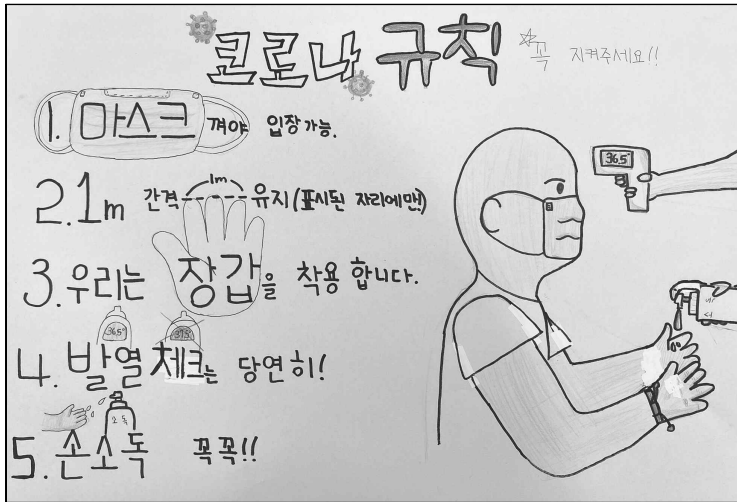 코로나 규칙 ☆꼭 지켜주세요!!
1. 마스크 껴야 입장 가능.
1m
2. 1m 간격 유지 (표시된 자리에만!)
3. 우리는 장갑을 착용 합니다.
36.5° 37.5°
4. 발열 체크는 당연히!
소독
5. 손소독 꼭꼭!!
36.5°